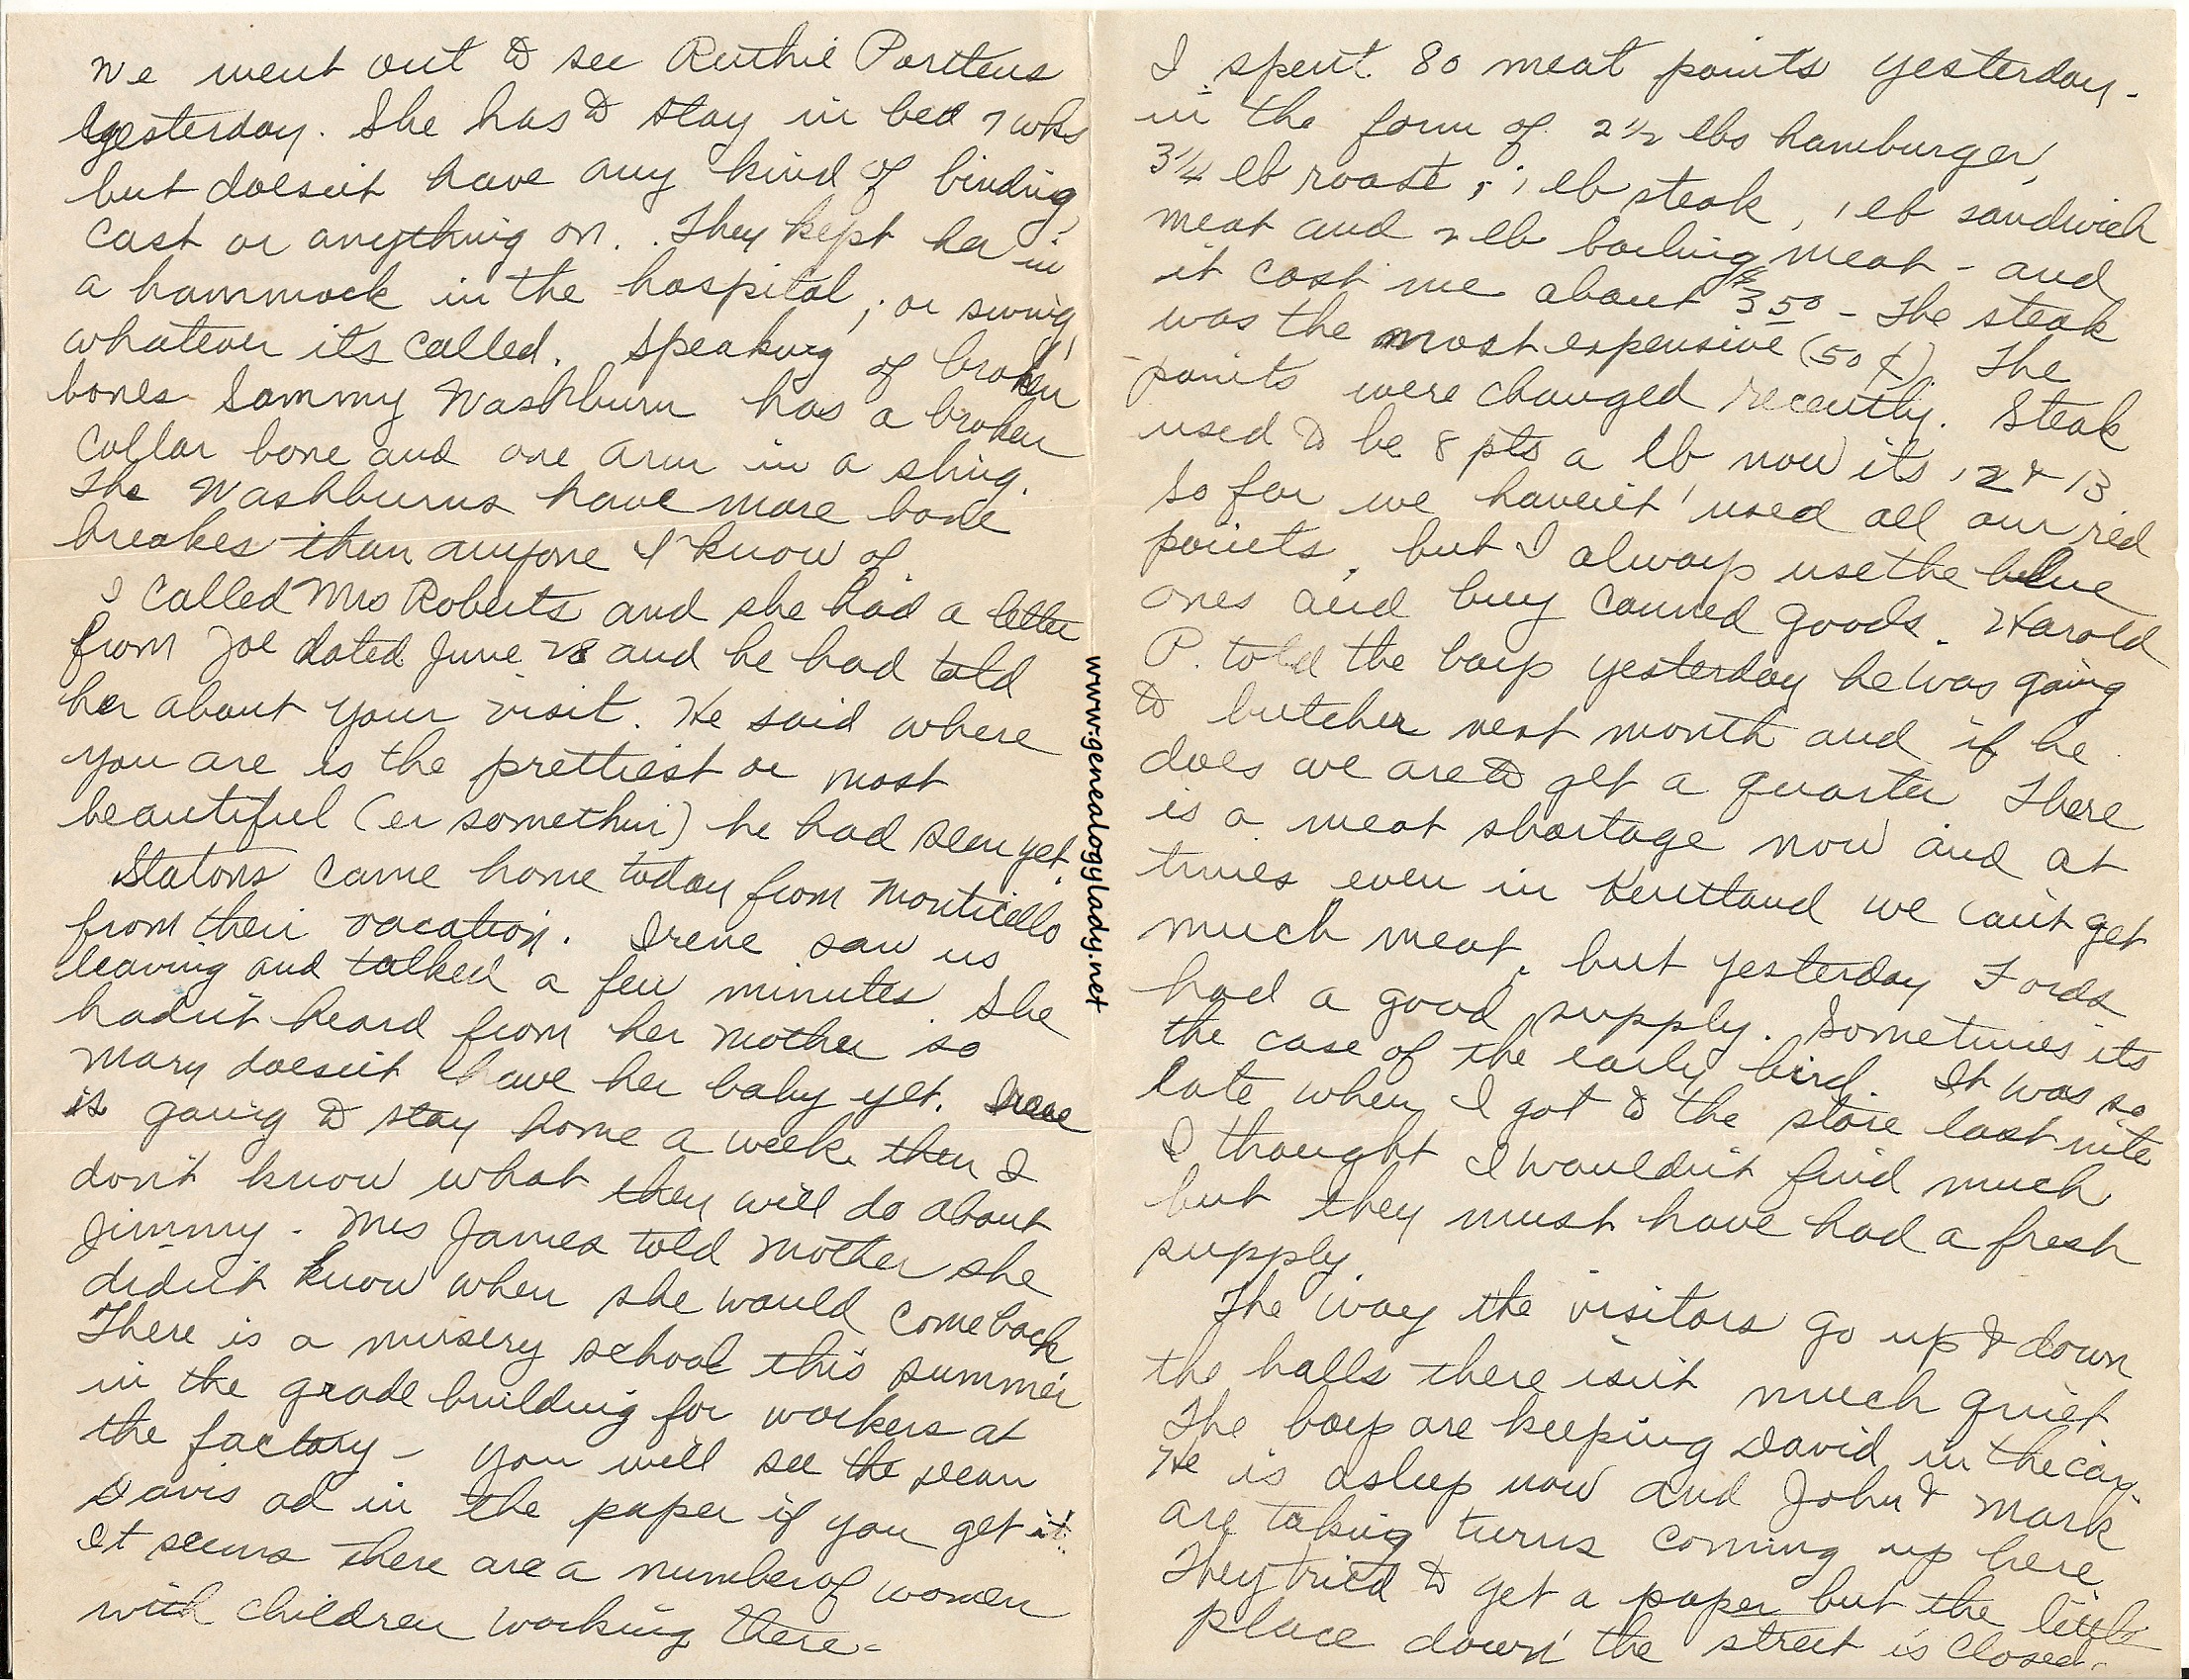 We went out to see Ruthie Porteus
yesterday. She has to stay in bed 7 wks
but doesn't have any kind of binding,
cast or anything on. They kept her in
a hammock in the hospital, or swing,
whatever its called. Speaking of broken
bones Sammy Washburn has a broken
collar bone and one arm in a sling.
The Washburns have more bone
breakes than anyone I know of.
I called Mrs Roberts and she had a letter
from Joe dated June 28 and he had told
her about your visit. He said where
you are is the prettiest or most
beautiful (er somethin) he had seen yet.
Statons came home today from Monticello
from their vacation. Irene saw us
leaving and talked a few minutes. She
hadn't heard from her mother so
Mary doesn't have her baby yet. Irene
is going to stay home a week then I
don't know what they will do about
Jimmy. Mrs James told Mother she
didn't know when she would come back
There is a nursery school this summer
in the grade building for workers at
the factory - you will see the Dean
Davis ad in the paper if you get it.
It seems there are a number of women
with children working there -
I spent 80 meat points yesterday -
in the form of 2 1/2 lbs hamburger,
3 1/4 lb roast, 1 lb steak, 1 lb sandwich
meat and 2 lb boiling meat - and
it cost me about $3 50 - The steak
was the most expensive (50¢). The
points were changed recently. Steak
used to be 8 pts a lb now its 12 & 13
So far we haven't used all our red
points, but I always use the blue
ones and buy canned goods. Harold
P. told the boys yesterday he was going
to butcher next month and if he
does we are to get a quarter There
is a meat shortage now and at
times even in Kentland we can't get
much meat, but yesterday Fords
had a good supply. Sometimes its
the case of the early bird. It was so
late when I got to the store last nite
I thought I wouldn't find much
but they must have had a fresh
supply.
The way the visitors go up & down
the halls there isn't much quiet
The boys are keeping David in the car.
He is asleep now and John & Mark
are taking turns coming up here
They tried to get a paper but the little
place down the street is closed.
www.genealogylady.net